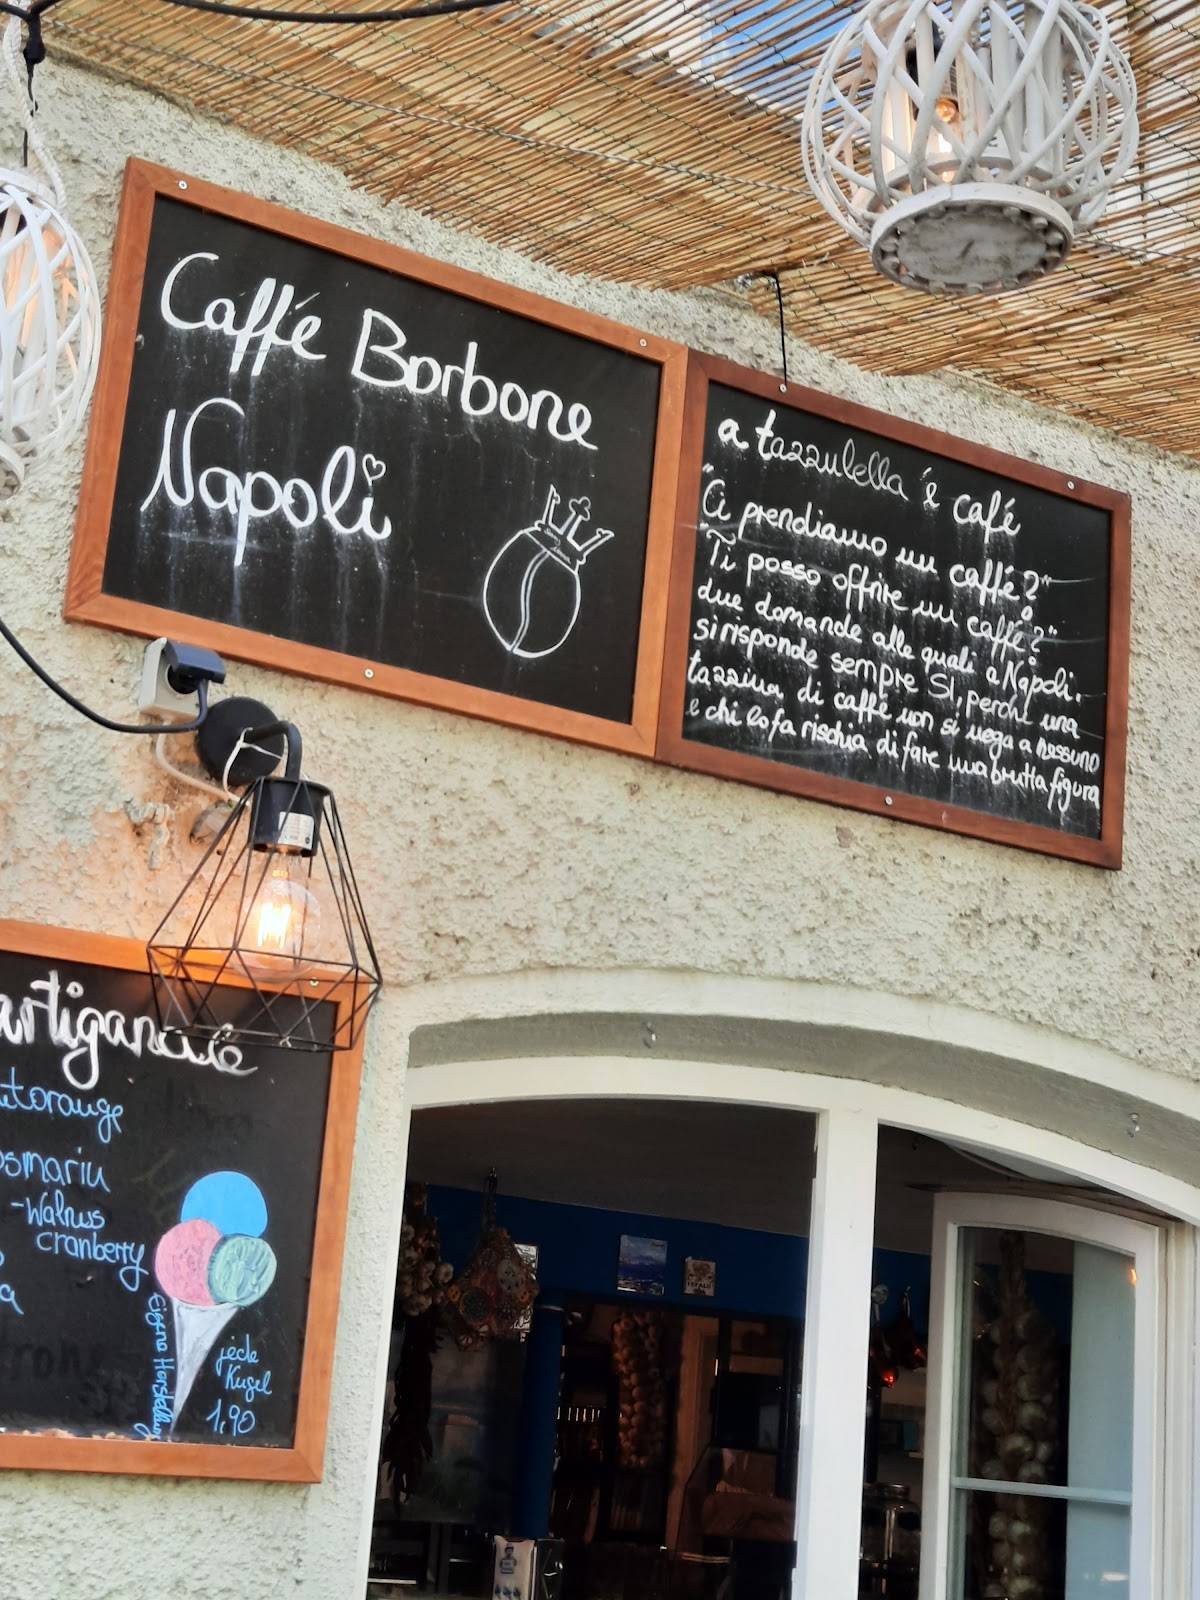 Caffé Borbone
Napoli
a tazzulella 'e café
"Ci prendiamo un caffé?"
"Ti posso offrire un caffé?"
due domande alle quali a Napoli.
si risponde sempre SI, perché una
tazzina di caffé non si nega a nessuno
e chi lo fa rischia di fare una brutta figura
artigianale
utorange
osmarin
-Walnus
cranberry
a
Eigene Herstellung
jede
Kugel
1,90